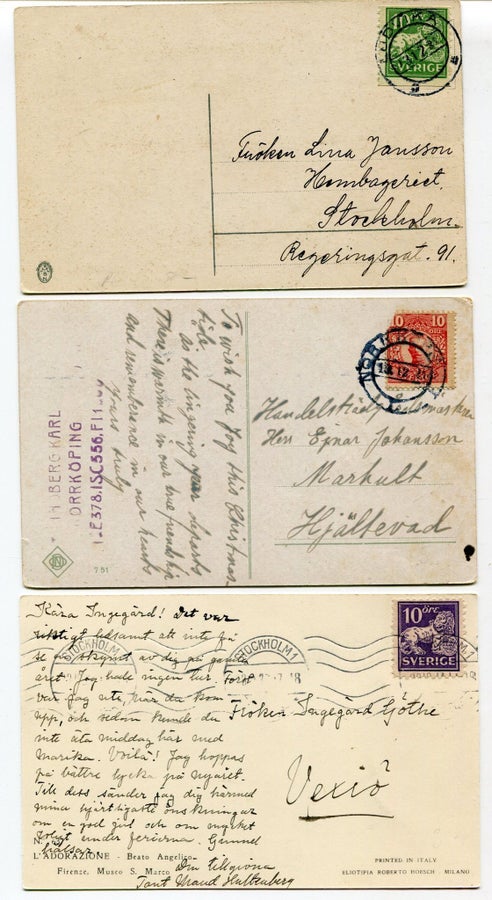 SVERIGE
Fröken Lina Jansson
Hembageriet,
Stockholm.
Regeringsgat. 91.
10 10
To wish you Joy this Christmas
tide
as the lingering year departs
There is warmth in our true friendship
and remembrance in our hearts
Yours truly
BERG KARL
ORRKÖPING
751
Herr Ejnar Johansson
Markhult
Hjältevad
Kära Ingegärd! Det var
riktigt ledsamt att inte få
se en skymt av dig på gamla
året. Jag hade ingen tur. Först
var jag ute, när du kom
upp, och sedan kunde du
inte äta middag här med
Marika. Voilà! Jag hoppas
på bättre lycka på nyåret.
Till dess sänder jag dig härmed
mina hjärtligaste önskningar
om en god jul och om mycket
roligt under ferierna. Gunnel
hälsar
Din tillgivna
Tant Maud Hultenberg
STOCKHOLM 1
STOCKHOLM 1
10 ÖRE
SVERIGE
Fröken Ingegärd Göthe
Vexiö
L'ADORAZIONE - Beato Angelico
Firenze, Museo S. Marco
PRINTED IN ITALY
ELIOTIPIA ROBERTO HOESCH - MILANO